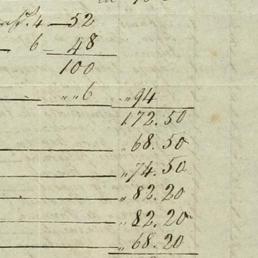 4 — 52
6 — 48
100
— „ „ 6 „ 94
172.50
— „ 68.50
— „ 74.50
— „ 82.20
— „ 82.20
— „ 68.20